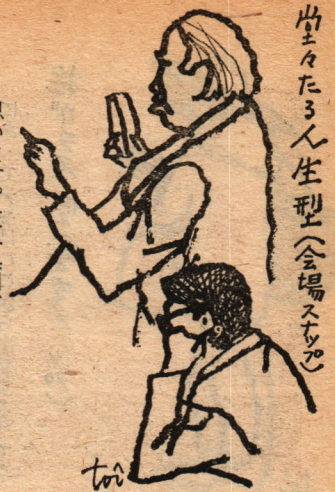 堂々たる人生型（会場スナップ）
toî